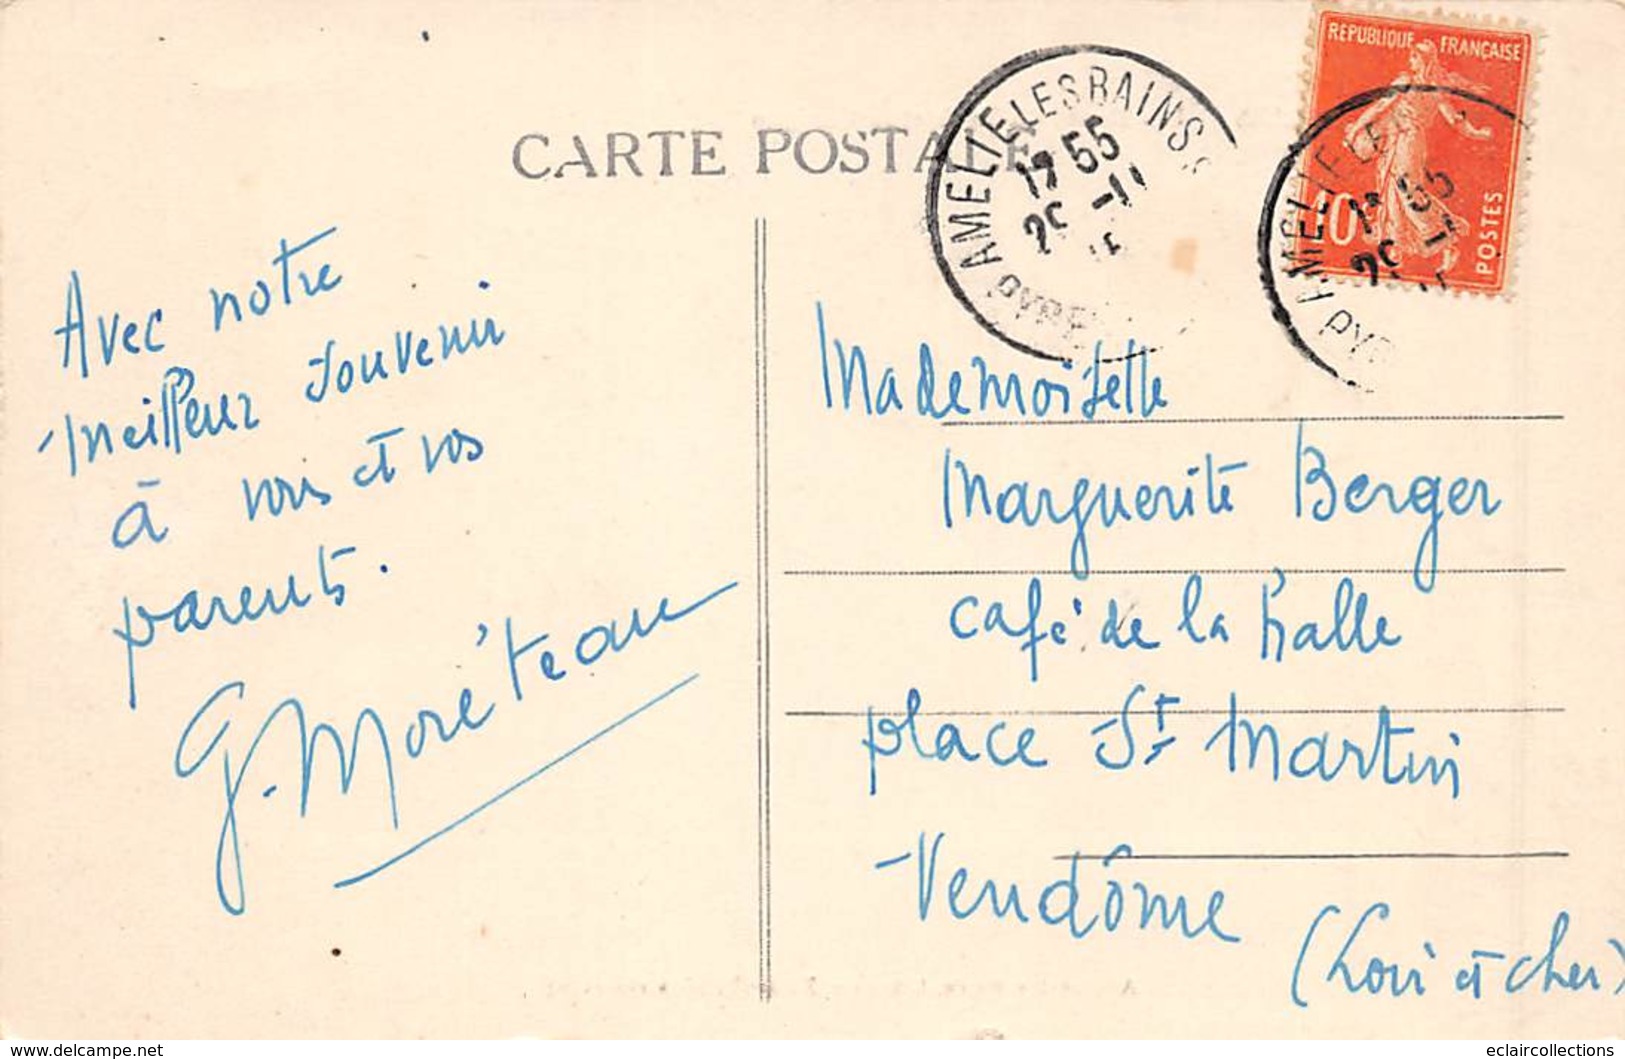 CARTE POSTALE
AMELIE LES BAINS
17 55
REPUBLIQUE FRANÇAISE
10c
POSTES
AMELIE LE
55
Avec notre
meilleur souvenir
à vous et vos
parents.
G. Moréteau
Mademoiselle
Marguerite Berger
café de la halle
place St Martin
Vendôme
(Loir et Cher)
www.delcampe.net
eclaircollections